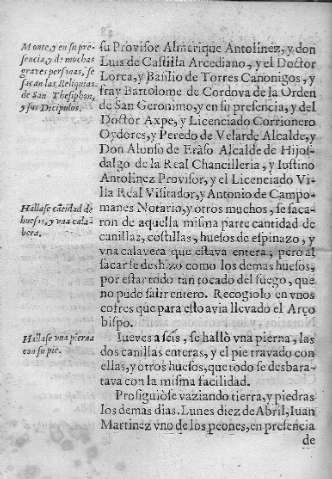 Monte, y en su pre-
sencia, y de muchas
graves personas, se
sacan las Reliquias
de San Thesiphon,
y sus Dicipulos.
su Provisor Almerique Antolinez, y don
Luis de Castilla Arcediano, y el Doctor
Lorca, y Basilio de Torres Canonigos, y
fray Bartolome de Cordova de la Orden
de San Geronimo, y en su presencia, y del
Doctor Axpe, y Licenciado Corrionero
Oydores, y Peredo de Velarde Alcalde, y
Don Alonso de Eraso Alcalde de Hijos-
dalgo de la Real Chancilleria, y Iostino
Antolinez Provisor, y el Licenciado Vi-
lla Real Visitador, y Antonio de Campo-
manes Notario, y otros muchos, se saca-
Hallase cãtidad de
huesos, y vna cala
bera.
ron de aquella misma parte cantidad de
canillas, costillas, huesos de espinazo, y
vna calavera que estava entera, pero al
sacar se deshizo como los demas huesos,
por estar todo tan tocado del fuego, que
no pudo salir entero. Recogiolo en vnos
cofres que para esto avia llevado el Arço
bispo.
Hallase vna pierna
con su pie.
Iueves a séis, se hallò vna pierna, las
dos canillas enteras, y el pie travado con
ellas, y otros huesos, que todo se desbara-
tava con la misma facilidad.
Prosiguiòse vaziando tierra, y piedras
los demas dias. Lunes diez de Abril, Iuan
Martinez vno de los peones, en presencia
de